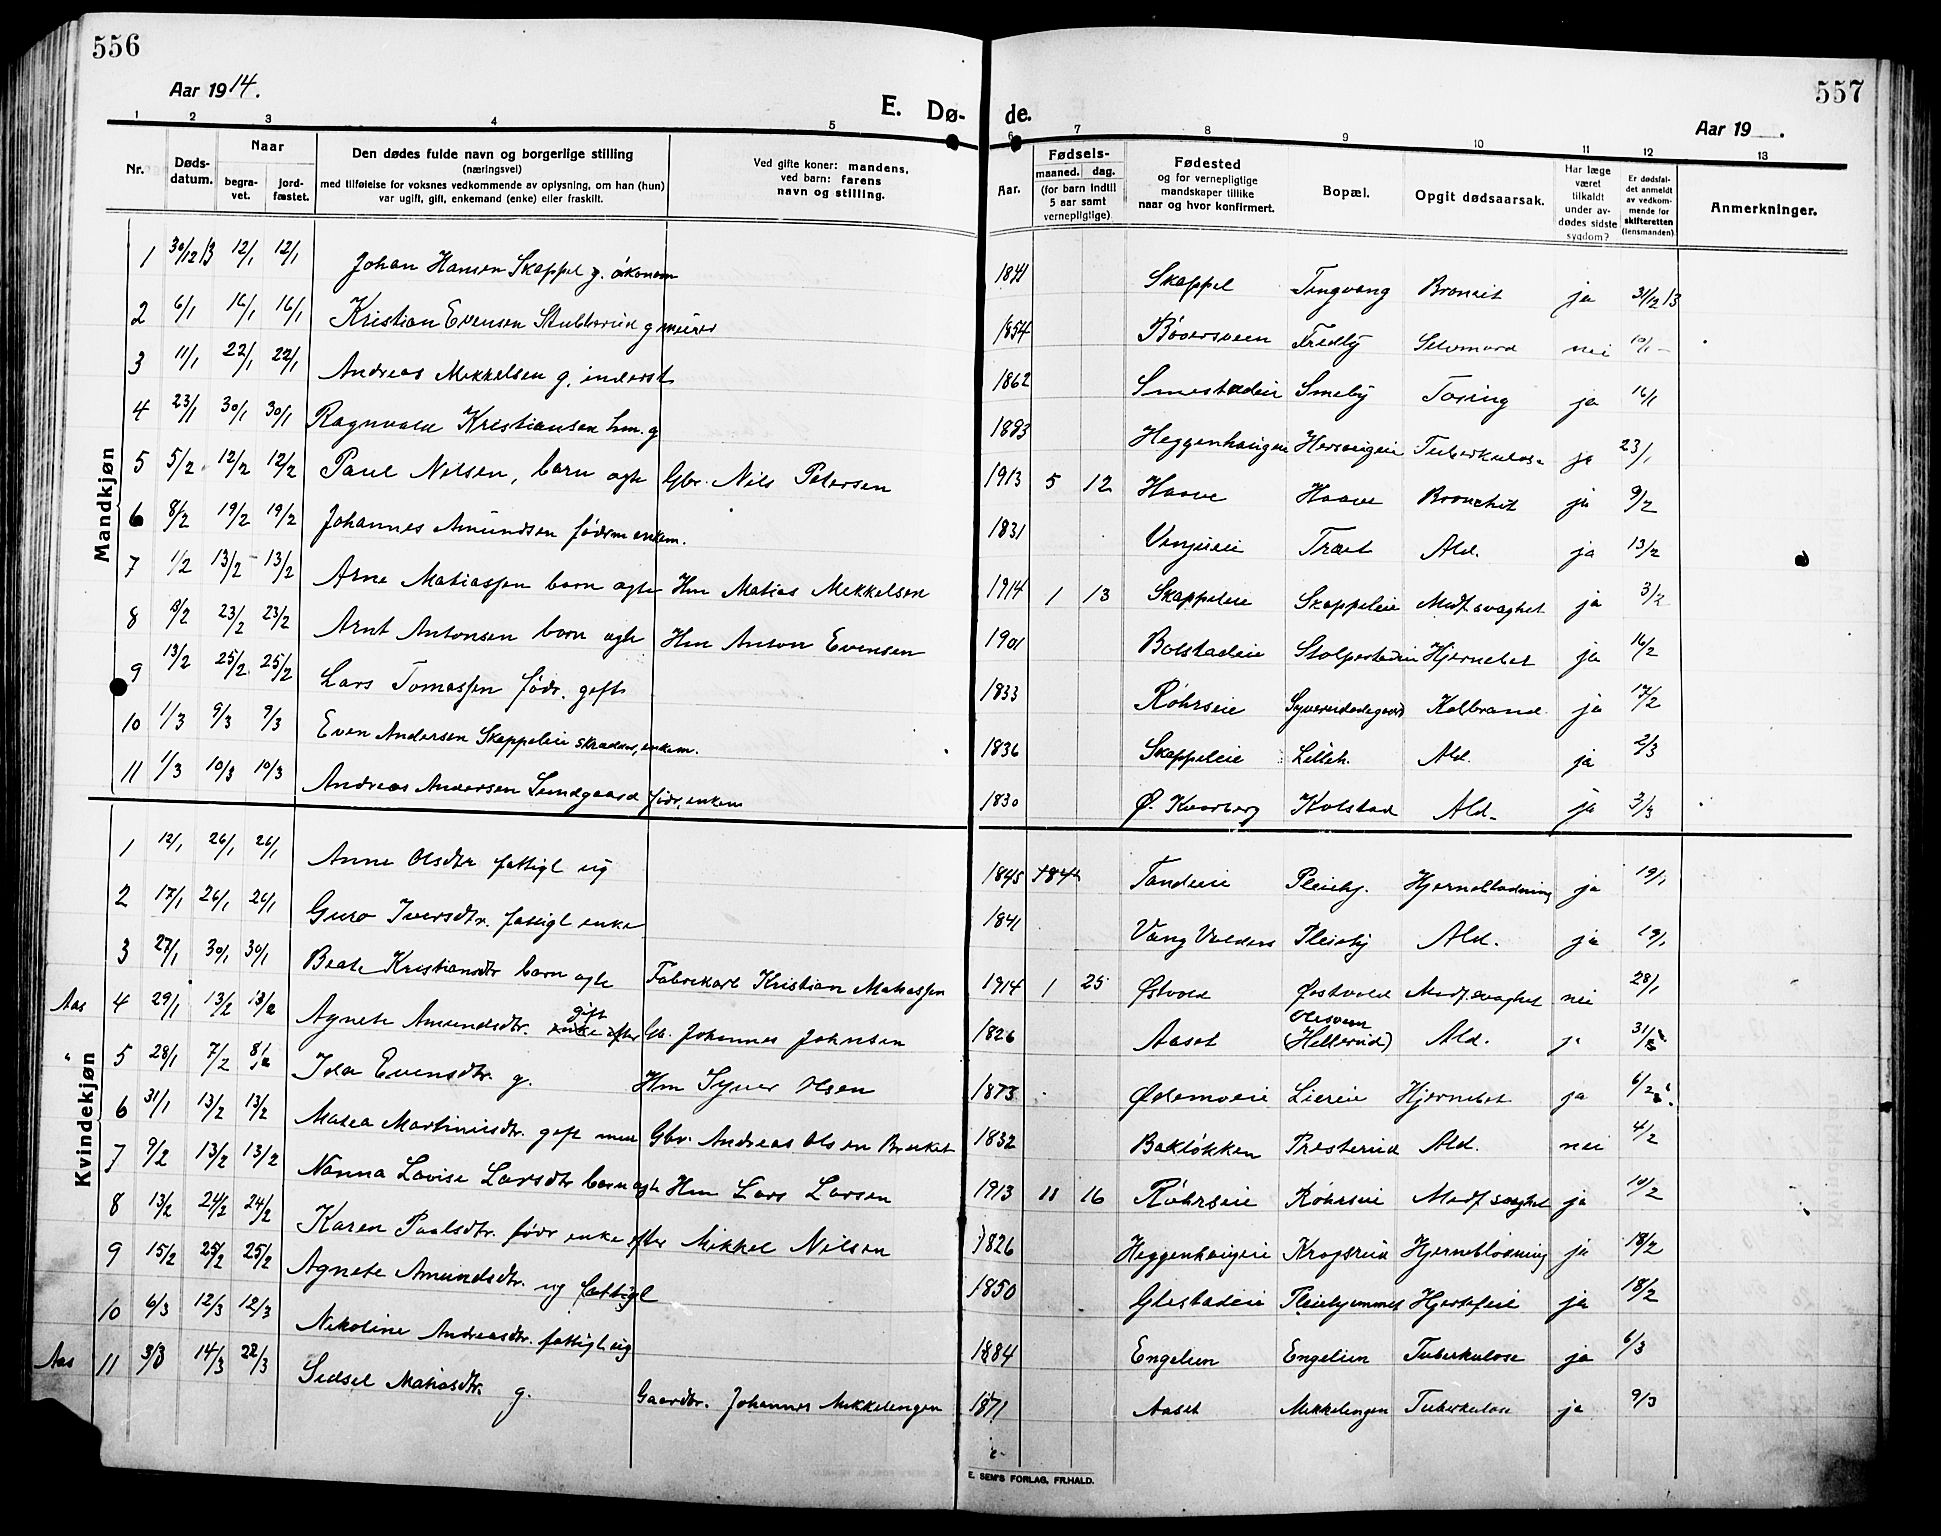 556
557
Aar 1914.
E. Dø-
de.
Aar 19 .
1 2 3 4 5 6 7 8 9 10 11 12 13
Nr.
Døds-datum.
Naar
begra-vet.
jord-fæstet.
Den dødes fulde navn og borgerlige stilling
(næringsvei)
med tilføielse for voksnes vedkommende av oplysning, om han (hun)
var ugift, gift, enkemand (enke) eller fraskilt.
Ved gifte koner: mandens,
ved barn: farens
navn og stilling.
Aar.
Fødsels-
maaned. dag.
(for barn indtil
5 aar samt
vernepligtige)
Fødested
og for vernepligtige
mandskaper tillike
naar og hvor konfirmert.
Bopæl.
Opgit dødsaarsak.
Har læge
været
tilkaldt
under av-
dødes sidste
sygdom?
Er dødsfal-
det anmeldt
av vedkom-
mende for
skifteretten
(lensmanden)
Anmerkninger.
Mandkjøn
1 30/12 13 12/1 12/1 Johan Hansen Skappel g. økonom 1841 Skappel Tingvang Bronkit ja 31/12 13
2 6/1 16/1 16/1 Kristian Evensen Stubberud g murer 1854 Bøversveen Fredly Selvmord nei 10/1
3 11/1 22/1 22/1 Andreas Mikkelsen g. inderst 1862 Smestadeie Smeby Tæring ja 16/1
4 23/1 30/1 30/1 Ragnvald Kristiansen hm. g 1883 Heggenhaugen Tuberkulose ja 23/1
5 5/2 12/2 12/2 Paul Nilsen, barn ægte Gbr. Nils Petersen 1913 5 12 Haave Haave Bronchit ja 9/2
6 8/2 19/2 19/2 Johannes Amundsen enkem. 1831 Træet Ald. ja 13/2
7 1/2 13/2 13/2 Arne Matiassen barn ægte Hm Matias Mikkelsen 1914 1 13 Skappeleie Skappeleie Medf. svaghet ja 3/2
8 8/2 23/2 23/2 Arnt Antonsen barn ægte Hm Anton Evensen 1901 Bolstadeie Stolpestadeie Hjernebet ja 16/2
9 13/2 25/2 25/2 Lars Tomassen fødr. gift 1833 Røhrseie Syverudødegaard Kolbrand ja 17/2
10 1/3 9/3 9/3 Even Andersen Skappeleie skrædder, enkem. 1836 Skappeleie Lilleh. Ald. ja 2/3
11 1/3 10/3 10/3 Andreas Andersen Lundgaard fødr, enkem 1830 Ø. Kvarberg Kolstad Ald. ja 3/3
Kvindekjøn
1 12/1 26/1 26/1 Anne Olsdtr fattigl ug 1845 Tandeie Pleiehj. Hjerneblødning ja 19/1
2 17/1 26/1 26/1 Guro Iversdtr. fattigl enke 1841 Vang Valdres Pleiehj Ald. ja 19/1
3 27/1 30/1 30/1 Beate Kristiansdtr barn ægte Fabrikarb Kristian Matiassen 1914 1 25 Østvold Østvold Medf. svaghet nei 28/1
Aas 4 29/1 13/2 13/2 Agnete Amundsdtr. gift enke efter Gb. Johannes Johnsen 1826 Aaset Olsveen (Hellerud) Ald. ja 31/1
" 5 28/1 7/2 8/2 Ida Evensdtr. g. Hm Syver Olsen 1873 Ødemoeie Liereie Hjernebet ja 6/2
6 31/1 13/2 13/2 Matea Martiniusdtr. gift med Gbr. Andreas Olsen Bræket 1832 Bakløkken Presterud Ald. nei 4/2
7 9/2 13/2 13/2 Nanna Lovise Larsdtr barn ægte Hm Lars Larsen 1913 11 16 Røhrseie Røhrseie Medf svaghet ja 10/2
8 13/2 24/2 24/2 Karen Paulsdtr. fødr enke efter Mikkel Nilsen 1826 Heggenhaugeie Krogsrud Hjerneblødning ja 18/2
9 15/2 25/2 25/2 Agnete Amundsdtr. ug fattigl 1850 Glestadeie Pleiehjemmet Hjertefeil ja 18/2
10 6/3 12/3 12/3 Nikoline Andreasdtr. fattigl. ug 1884 Engelien Engelien Tuberkulose ja 6/3
Aas 11 3/3 14/3 22/3 Sidsel Matiasdtr. g. Gaardbr. Johannes Mikkelengen 1871 Aaset Mikkelengen Tuberkulose ja 9/3
E. SEM'S FORLAG, FR.HALD.